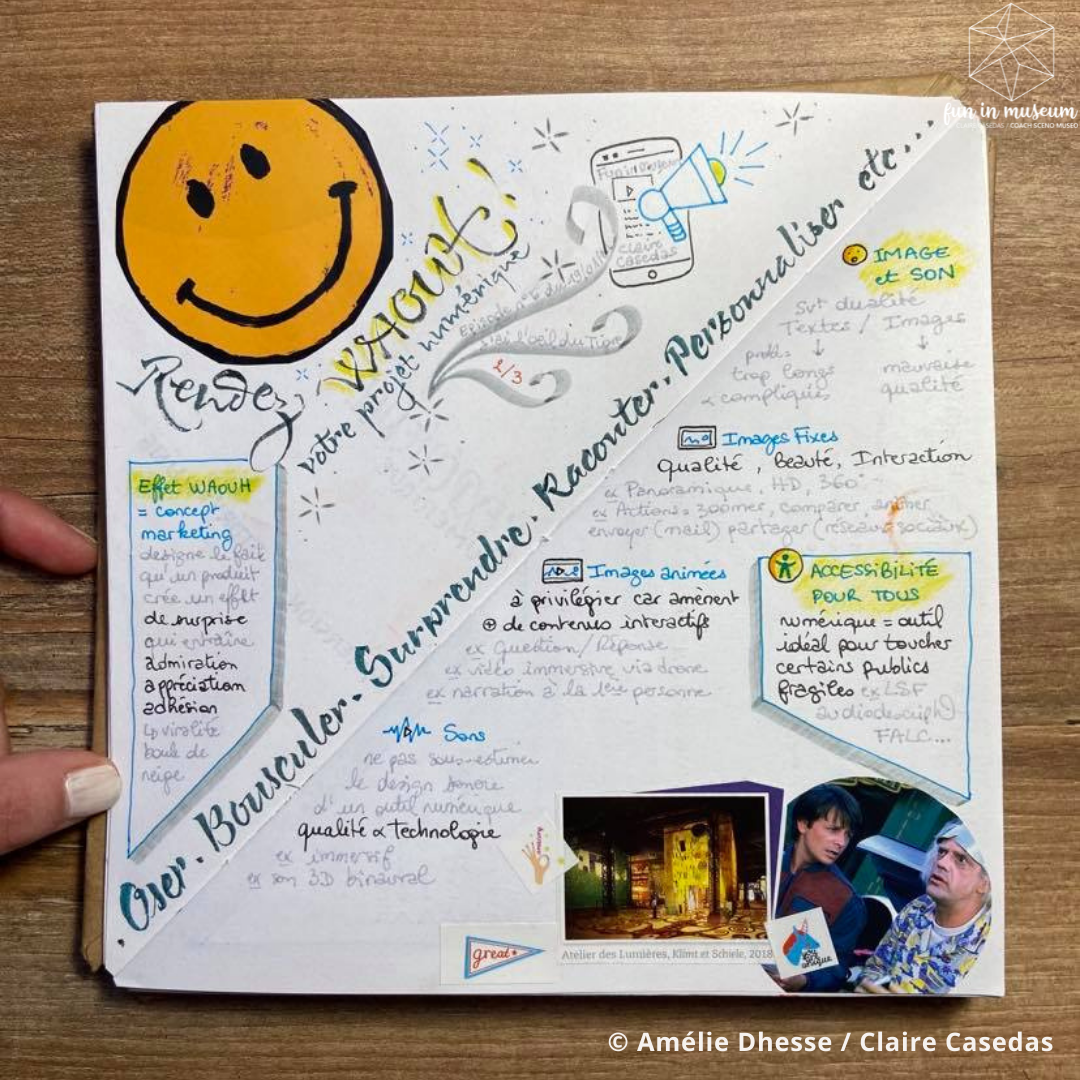 fun in museum
Rendez
WAOUH!
votre projet numérique
Episode n°6 du 19/01/
j'ai l'oeil du Tigre
2/3
Fun in Museum
Claire
Casedas
Oser. Bousculer. Surprendre. Raconter. Personnaliser etc...
Effet WAOUH
= concept
marketing
désigne le fait
qu'un produit
crée un effet
de surprise
qui entraîne
admiration
appréciation
adhésion
↳ viralité
boule de
neige
IMAGE
et SON
svt dualité
Textes / Images
↓ ↓
probl=
trop longs
& compliqués
mauvaise
qualité
Images Fixes
qualité, beauté, Interaction
ex Panoramique, HD, 360°
ex Actions = zoomer, comparer, animer
envoyer (mail) partager (réseaux sociaux)
Images animées
à privilégier car amènent
⊕ de contenus interactifs
ex question / Réponse
ex vidéo immersive via drone
ex narration à la 1ère personne
ACCESSIBILITÉ
POUR TOUS
numérique = outil
idéal pour toucher
certains publics
fragiles ex LSF
audiodescript°
FALC...
Sons
ne pas sous-estimer
le design sonore
d'un outil numérique
qualité & technologie
ex immersif
ex son 3D binaural
great
Atelier des Lumières, Klimt et Schiele, 2018
unique
© Amélie Dhesse / Claire Casedas